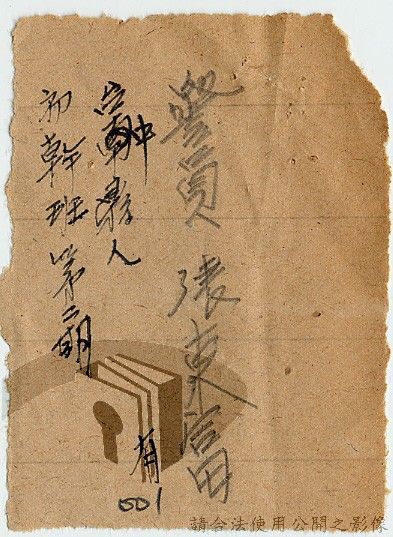 警員 張東富
縣人
初幹班第二期
有
001
請合法使用公開之影像